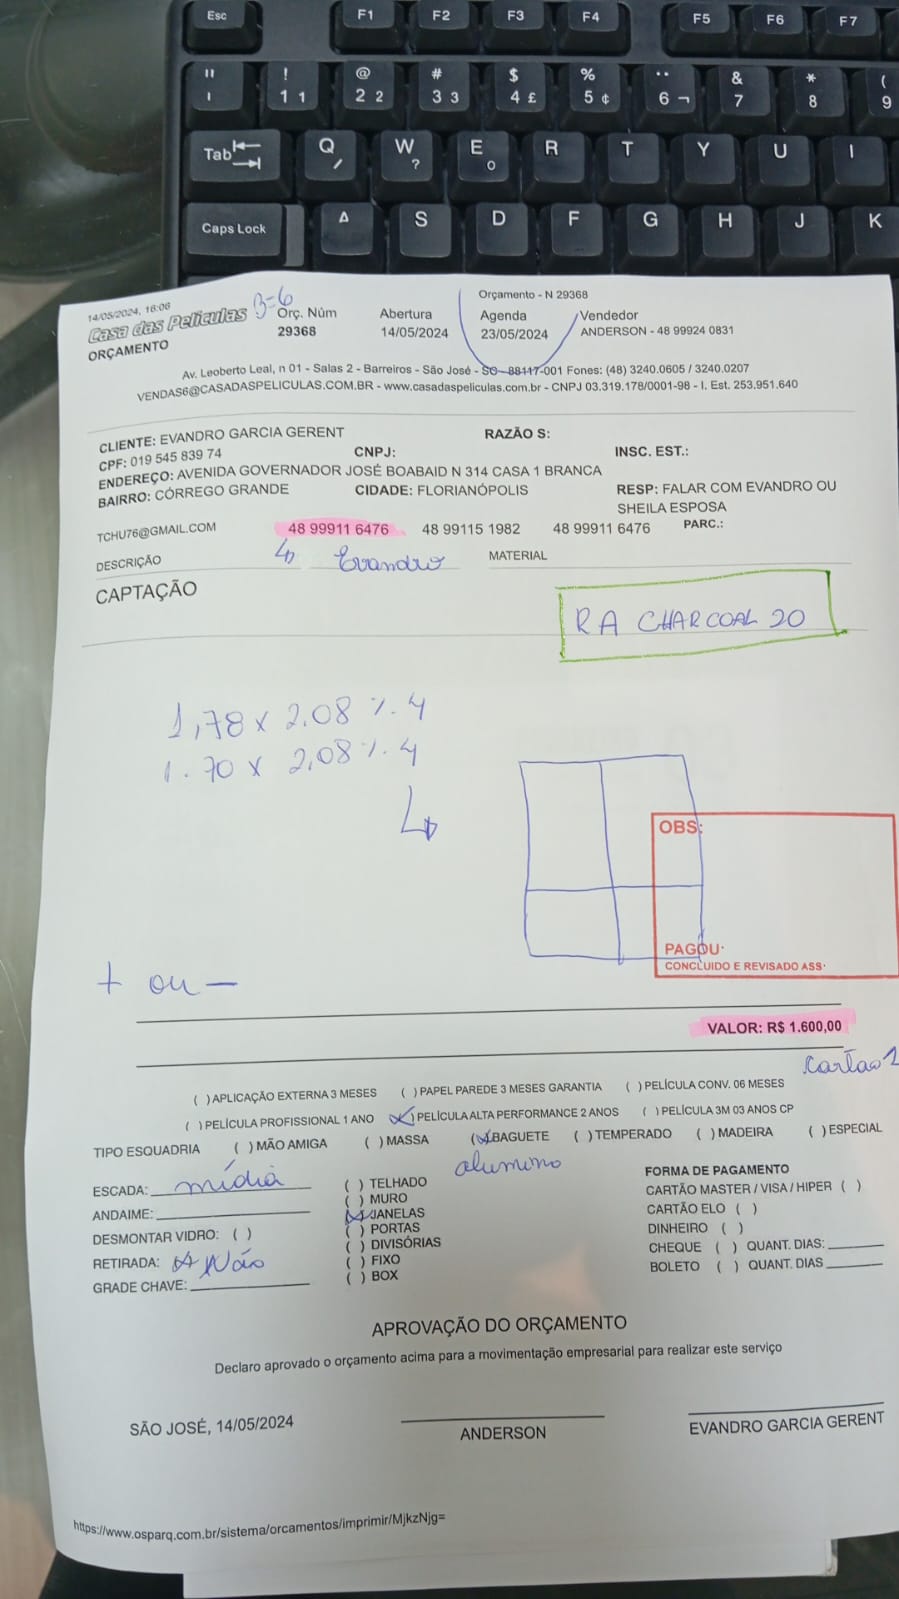 Esc F1 F2 F3 F4 F5 F6 F7
" ! @ # $ % ¨ & * (
' 1 1 2 2 3 3 4 £ 5 ¢ 6 ¬ 7 8 9
Tab Q / W ? E ° R T Y U I
Caps Lock A S D F G H J K
14/05/2024, 16:06
Orçamento - N 29368
Casa das Películas 3-6 Orç. Núm Abertura Agenda Vendedor
ORÇAMENTO 29368 14/05/2024 23/05/2024 ANDERSON - 48 99924 0831
Av. Leoberto Leal, n 01 - Salas 2 - Barreiros - São José - SC - 88117-001 Fones: (48) 3240.0605 / 3240.0207
VENDAS6@CASADASPELICULAS.COM.BR - www.casadaspeliculas.com.br - CNPJ 03.319.178/0001-98 - I. Est. 253.951.640
CLIENTE: EVANDRO GARCIA GERENT RAZÃO S:
CPF: 019 545 839 74 CNPJ: INSC. EST.:
ENDEREÇO: AVENIDA GOVERNADOR JOSÉ BOABAID N 314 CASA 1 BRANCA
BAIRRO: CÓRREGO GRANDE CIDADE: FLORIANÓPOLIS RESP: FALAR COM EVANDRO OU
SHEILA ESPOSA
TCHU76@GMAIL.COM 48 99911 6476 48 99115 1982 48 99911 6476 PARC.:
DESCRIÇÃO Evandro MATERIAL
CAPTAÇÃO
RA CHARCOAL 20
1,78 x 2.08 %. 4
1.70 x 2,08 %. 4
OBS:
PAGOU:
CONCLUIDO E REVISADO ASS:
+ ou -
VALOR: R$ 1.600,00
Cartão 1
( ) APLICAÇÃO EXTERNA 3 MESES ( ) PAPEL PAREDE 3 MESES GARANTIA ( ) PELÍCULA CONV. 06 MESES
( ) PELÍCULA PROFISSIONAL 1 ANO (X) PELÍCULA ALTA PERFORMANCE 2 ANOS ( ) PELÍCULA 3M 03 ANOS CP
TIPO ESQUADRIA ( ) MÃO AMIGA ( ) MASSA (X) BAGUETE ( ) TEMPERADO ( ) MADEIRA ( ) ESPECIAL
alumino
ESCADA: mídia ( ) TELHADO FORMA DE PAGAMENTO
ANDAIME: ( ) MURO CARTÃO MASTER / VISA / HIPER ( )
DESMONTAR VIDRO: ( ) (X) JANELAS CARTÃO ELO ( )
RETIRADA: Não ( ) PORTAS DINHEIRO ( )
GRADE CHAVE: ( ) DIVISÓRIAS CHEQUE ( ) QUANT. DIAS:
( ) FIXO BOLETO ( ) QUANT. DIAS
( ) BOX
APROVAÇÃO DO ORÇAMENTO
Declaro aprovado o orçamento acima para a movimentação empresarial para realizar este serviço
SÃO JOSÉ, 14/05/2024 ANDERSON EVANDRO GARCIA GERENT
https://www.osparq.com.br/sistema/orcamentos/imprimir/MjkzNjg=